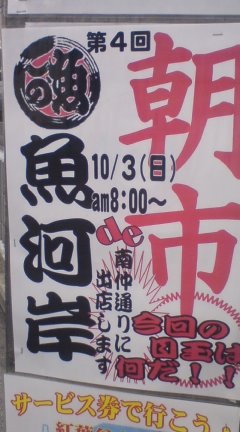 第4回
朝市
魚河岸
de
10/3(日)
am8:00～
南仲通りに
出店します
今回の
目玉は
何だ!!
サービス券で行こう